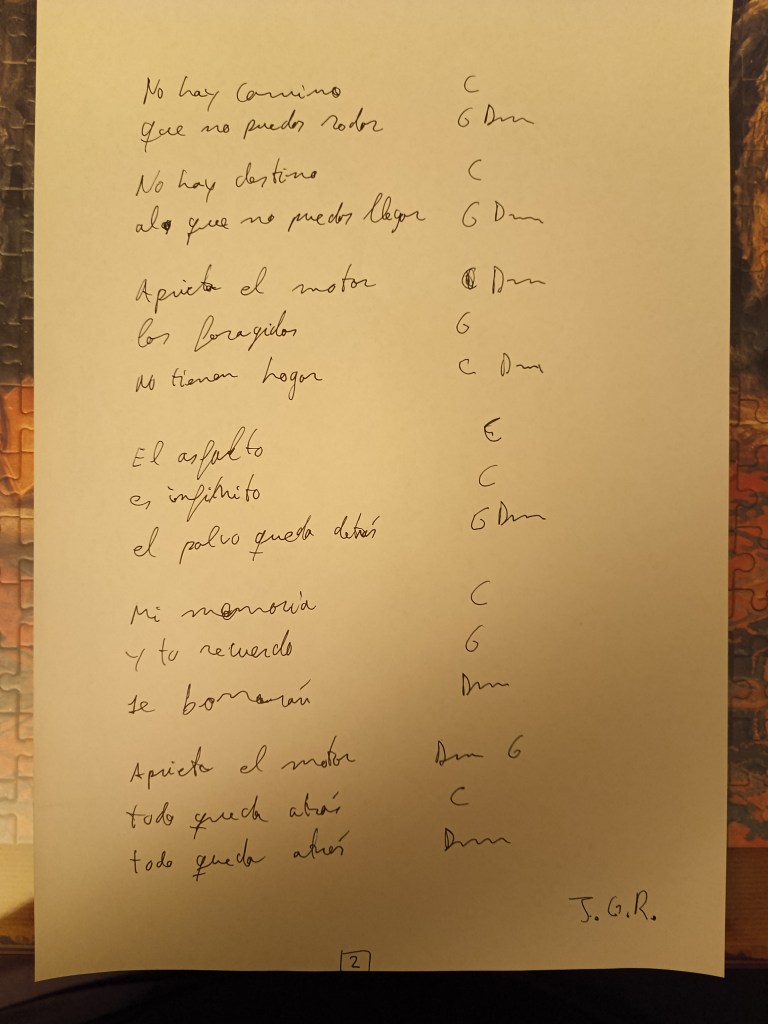 No hay camino C
que no puedas rodar G Dm
No hay destino C
al que no puedas llegar G Dm
Aprieta el motor Dm
los foragidos G
no tienen hogar C Dm
El asfalto E
es infinito C
el polvo queda detrás G Dm
Mi memoria C
y tu recuerdo G
se borrarán Dm
Aprieta el motor Dm G
todo queda atrás C
todo queda atrás Dm
J.G.R.
2